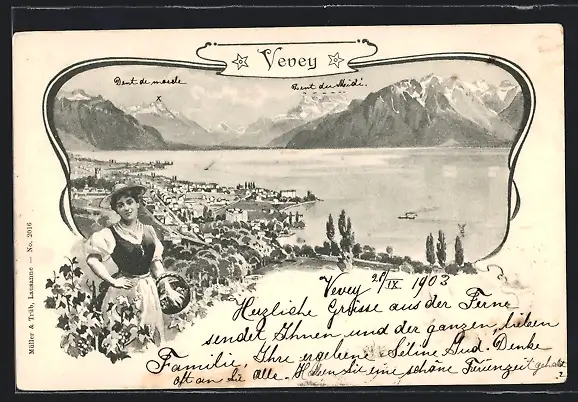 Vevey
Dent de morcle
Dent du Midi.
x
Müller & Trüb, Lausanne — No. 2016
Vevey 21/IX 1903
Herzliche Grüsse aus der Ferne
sendet Ihnen und der ganzen, lieben
Familie, Ihre ergebene Séline Gud. Denke
oft an Sie alle. Haben Sie eine schöne Ferienzeit gehabt
?